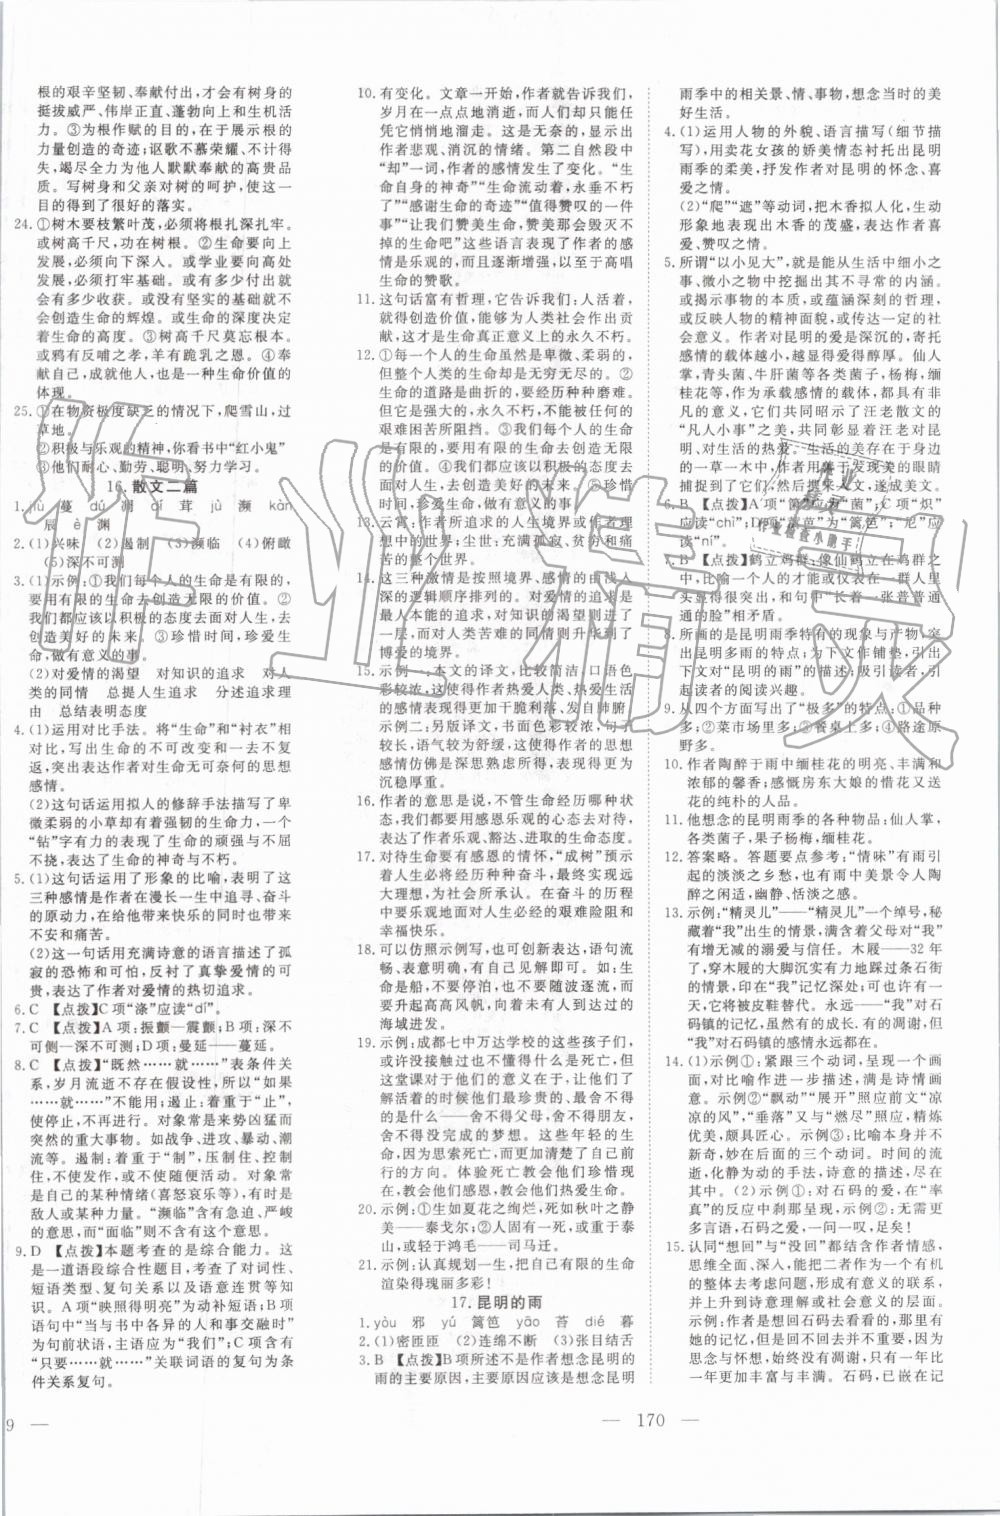 根的艰辛坚韧、奉献付出，才会有树身的
挺拔威严、伟岸正直、蓬勃向上和生机活
力。③为根作赋的目的，在于展示根的
力量创造的奇迹；讴歌不慕荣耀、不计得
失，竭尽全力为他人默默奉献的高贵品
质。写树身和父亲对树的呵护，使这一
目的得到了很好的落实。
24.①树木要枝繁叶茂，必须将根扎深扎牢。
或树高千尺，功在树根。②生命要向上，
必须根底向下深入。或学业要向高处发
展，必须打牢基础。或有多少付出就会
有多少收获。或没有坚实的基础就不会
创造生命的辉煌。或生命的深度决定着
生命的高度。③树高千尺莫忘根本。
或鸦有反哺之孝，羊有跪乳之恩。④奉
献自己，成就他人，也是一种生命价值的
体现。
25.①在物资极度缺乏的情况下，爬雪山，过
草地。
②积极与乐观的精神，你看书中“红小鬼”
③他们耐心、勤劳、聪明、努力学习。
16. 散文二篇
辰 è 渊
2.(1)兴味 (2)遏制 (3)濒临 (4)俯瞰
(5)深不可测
3.(1)示例：①我们每个人的生命是有限的，
但可以在有限的生命里，
去创造无限的价值。②
们都应该以积极的态度去面对人生，去
创造美好的未来。③珍惜时间，珍爱生
命，做有意义的事。
(2)对爱情的渴望 对知识的追求 对人
类的同情 总提人生追求 分述追求理
由 总结表明态度
4.(1)运用对比手法。将“生命”和“衬衣”相
对比，写出生命的不可改变和一去不复
返，突出表达作者对生命无可奈何的思想
感情。
(2)这句话运用拟人的修辞手法描写了卑
微柔弱的小草却有着强韧的生命力，一个
“钻”字有力的表现了生命的顽强与不屈
不挠，表达了生命的神奇与不朽。
5.(1)这句话运用了形象的比喻，表明了这
三种感情是作者在漫长一生中追寻、奋斗
的原动力，在给他带来快乐的同时也带来
不安和痛苦。
(2)这一句话用充满诗意的语言描述了孤
寂的恐怖和可怕，反衬了真挚爱情的美
好，表达了作者对爱情的热切追求。
6.C 【点拨】C项“涤”应读“dí”。
7.C 【点拨】A项：振颤—震颤；B项：深不
可侧—深不可测；D项：曼延—蔓延。
8.C 【点拨】“既然……就……”表条件关
系，岁月流逝不存在假设性，所以“如果
……就……”不能用；遏止：着重于“止”，
使停止，不再进行。对象常是来势凶猛而
突然的重大事物。如战争、进攻、暴动、潮
流等。遏制：着重于“制”，压制住、控制
住，不使发作，或不使任意活动。对象常
是自己的某种情绪（喜怒哀乐等），有时是
敌人或某种力量。“濒临”含有急迫、严峻
的意思，而“面临”则不含有这个意思。
9.D 【点拨】本题考查的是综合能力。这
是一道语段综合性题目，考查了对词性、
短语类型、复句关系以及语意连贯等知
识。A项“映照得明亮”为动补短语；B项
语句中“当与书中各异的人和事交融时”
为句前状语，主语应为“我们”；C项含有
“只要……就……”关联词语的复句为条
件关系复句。
10.有变化。文章一开始，作者就告诉我们，
岁月在一点点地消逝，而人们却只能任
凭它悄悄地溜走。这是无奈的，所以显示出
作者悲观、消沉的情绪。第二自然段中
“却”一词，作者的感情发生了变化。“生
命自身的神奇”“生命流动着，永垂不朽
了”“感谢生命的奇迹”“值得赞叹的一件
事”“让我们赞美生命吧”“我们毁灭不
掉的生命吧”这些语言表现了作者的感
情是乐观的，而且逐渐增强，以至于高唱
生命的赞歌。
11.这句话富有哲理，它告诉我们：人活着，
就得创造价值，能够为人类社会作出贡
献，这才是生命真正意义上的永久不朽。
12.①每一个人的生命虽然是卑微、柔弱的，
但整个人类的生命却是无穷无尽的。②
生命的道路是曲折的，要经历种种磨难，
但我们不要畏惧，要勇往直前，不被任何
艰难困苦所阻挡。③每一个人的生命是
有限的，但可以在有限的生命去创造无限
的价值。④我们都应该以积极的态度
去面对人生，去创造美好的未来。⑤珍惜
时间，珍爱生命，做有意义的事。
13.云霄：作者所追求的人生境界或
作者的精神世界；尘世：充满孤寂、贫穷和痛
苦的整个世界。
14.这三种激情是按照境界、感情的由浅入
深的逻辑顺序排列的。对爱情的追求是
人最本能的追求，对知识的渴望则更进了
一层，而对人类苦难的同情则升华到了
博爱的境界。
15.示例一：本文的译文，比较简洁，口语色
彩较浓，这使得作者热爱人类、热爱生活
的感情表现得干脆利落、发自肺腑。
示例二：另版译文，书面色彩较浓，句子
较长，语气较为舒缓，这使得作者的思想
感情仿佛是深思熟虑所得，表达得更为
沉稳厚重。
16.作者的意思是说，不管生命经历哪种状
态，我们都要用感恩乐观的心态去对待，
表达了作者乐观、豁达、进取的生命态度。
17.对待生命要有感恩的情怀，“成树”预示
着人生应不断奋斗，最终实现崇高的远
大理想，为社会所承认。在奋斗的历程
中要乐观地面对人生必经的艰难险阻和
幸福快乐。
18.可以仿照示例写，也可创新表达，语句流
畅、表意明确、有自己见解即可。如：生命
是船，不要停泊，也不要随波逐流，而
要升起高高风帆，向着未有人到达过的
海域进发。
19.示例：成都七中万达学校的这些孩子们，
或许没接触过也不懂得什么是死亡，但
这堂课对于他们的意义在于让他们了
解活着的时候他们最珍贵的、最舍不得
的是什么——舍不得父母，舍不得朋友，
舍不得没完成的梦想。这节课不是宣扬死
亡，因为思索死亡，而更清楚了自己前
行的方向。体验死亡教会他们珍惜现
在，教会他们感恩，教会他们热爱生命。
20.示例：①生如夏花之绚烂，死如秋叶之静
美——泰戈尔；②人固有一死，或重于泰
山，或轻于鸿毛——司马迁。
21.示例：认真规划一生，把自己有限的生命
渲染得瑰丽多彩！
17. 昆明的雨
1.yòu 邪 yú 篱笆 苔 dié 暮
2.(1)密匝匝 (2)连绵不断 (3)张目结舌
3.B 【点拨】B项所述不是作者想念昆明的
雨的主要原因，主要原因应该是想念昆明
雨季中的相关景、情、事物，想念当时的美
好生活。
4.(1)运用人物的外貌、语言描写（细节描
写），用卖花女孩的娇美情态衬托出昆明
雨季的柔美，抒发作者对昆明的怀念、喜
爱之情。
(2)“爬”“遮”等动词，把木香拟人化，生动
形象地表现出木香的茂盛，表达对木香的
喜爱、赞叹之情。
5.所谓“以小见大”，就是能从生活中细小之
事、微小之物中挖掘出其不寻常的内涵。
或揭示事物的本质，或蕴涵深刻的哲理，
或反映人物的精神面貌，或传达一定的社
会意义。作者对昆明的爱是深沉的，寄托
感情的载体越小，越显得爱得醇厚。仙人
掌，青头菌、牛肝菌等各类菌子，杨梅，缅
桂花等，作为承载着感情的载体，都具有非
凡的意义，它们共同昭示了汪老散文的
“凡人小事”之美，共同彰显汪老对昆明、
对昆明的雨的热爱。生活的美存在于身边
的一草一木中，作者用善于发现美的眼睛
捕捉到这些美，然后撰写来成美文。
6.B 【点拨】A项“箘”应为“菌”；C项“炽”
应读“chì”；D项“蓠笆”为“篱笆”，“尼”应
读“ní”。
7.B 【点拨】鹤立鸡群：像仙鹤立在鸡群之
中，比喻一个人的才能或仪表在一群人里
头显得很突出，和句中“长着一张普普通
通的脸”相矛盾。
8.所画的是昆明雨季特有的现象与产物，突
出昆明多雨的特点；为下文作铺垫，引出
下文对“昆明的雨”的描述；吸引读者，引
起读者的阅读兴趣。
9.从四个方面写出了“极多”的特点：①品种
多；②菜市场里多；③餐桌上多；④路途原
野多。
10.作者陶醉于雨中缅桂花的明亮、丰满和
浓郁的馨香；感慨房东大娘的惜花又送
花的纯朴的人品。
11.他想念的昆明雨季的各种物品：仙人掌，
各类菌子，果子杨梅，缅桂花。
12.答案略。答题要点参考：“情味”有雨引
起的淡淡的乡愁，也有雨中美景令人陶
醉之闲适，幽静、恬淡之感。
13.示例：“精灵儿”——“精灵儿”一个绰号，秘
藏着“我”出生的情景，满含着父辈对“我”
有增无减的溺爱与信任。木屐——32年
了，穿木屐的大脚沉实有力地踩过条石街
的情景，印在“我”记忆深处；可有
一天，它将被皮鞋替代。永远——“我”对石
码镇的记忆，虽然有的成形，有的凋谢，但
“我”对石码镇的情感永远都在。
14.(1)示例①：紧跟三个动词，呈现一个画
面，对比喻作进一步描述，是诗情画意
的。示例②：“飘动”照应前文“凉
凉的风”，“垂落”又与“燃尽”照应，精炼
优美，颇具匠心。示例③：比喻本来并不
新奇，妙在后面的三个动词。时间的流
逝，化静为动的手法，诗意的描述，呈现
出一个诗意的画面。(2)示例①：在“率
真”的反应中感到诗意。示例②：无需更
多言语，石码之爱，一词，足矣！
15.认同“想回”与“没回”都结含作者情感，
思维全面、深入，能把二者作为一个有机
的整体去考虑问题，形成有意义的联系，
并进一步上升至哲理或社会的层面。
示例：作者是想回石码去看看的，那里有
她的记忆与情感，但她没有回，一年一年
想念，至始至终没有凋谢，只有一年比一
年更加执着的情感。石码，已嵌在记忆
9
— 170 —